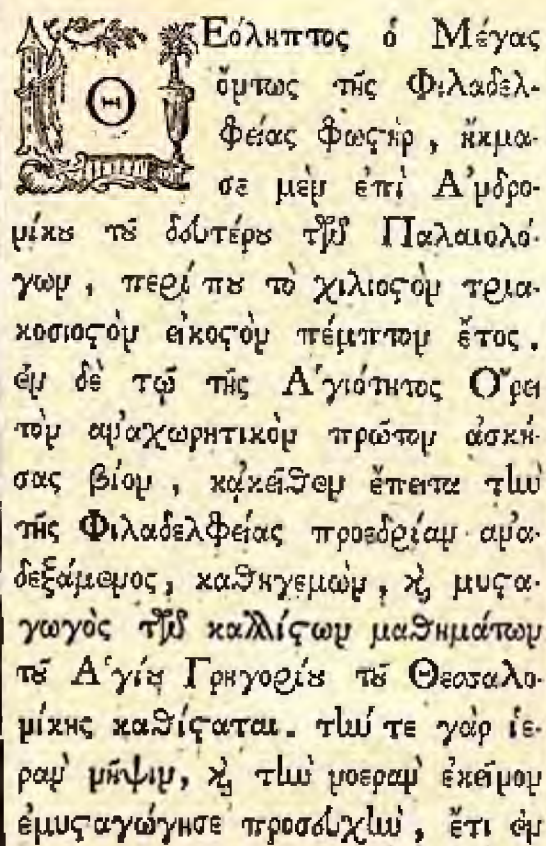 ΘΕόληπτος ὁ Μέγας
ὄντως τῆς Φιλαδελ-
φείας φωστὴρ, ἤκμα-
σε μὲν ἐπὶ Ἀνδρο-
νίκου τοῦ δευτέρου τῶν Παλαιολό-
γων, περί που τὸ χιλιοστὸν τρια-
κοσιοστὸν εἰκοστὸν πέμπτον ἔτος.
ἐν δὲ τῷ τῆς Ἁγιότητος Ὄρει
τὸν ἀναχωρητικὸν πρῶτον ἀσκή-
σας βίον, κᾀκεῖθεν ἔπειτα τὴν
τῆς Φιλαδελφείας προεδρίαν ἀνα-
δεξάμενος, καθηγεμὼν, καὶ μυστα-
γωγὸς τῶν καλλίστων μαθημάτων
τοῦ Ἁγίου Γρηγορίου τοῦ Θεσσαλο-
νίκης καθίσταται. τήν τε γὰρ ἱε-
ρὰν νῆψιν, καὶ τὴν νοερὰν ἐκεῖνον
ἐμυσταγώγησε προσευχὴν, ἔτι ἐν